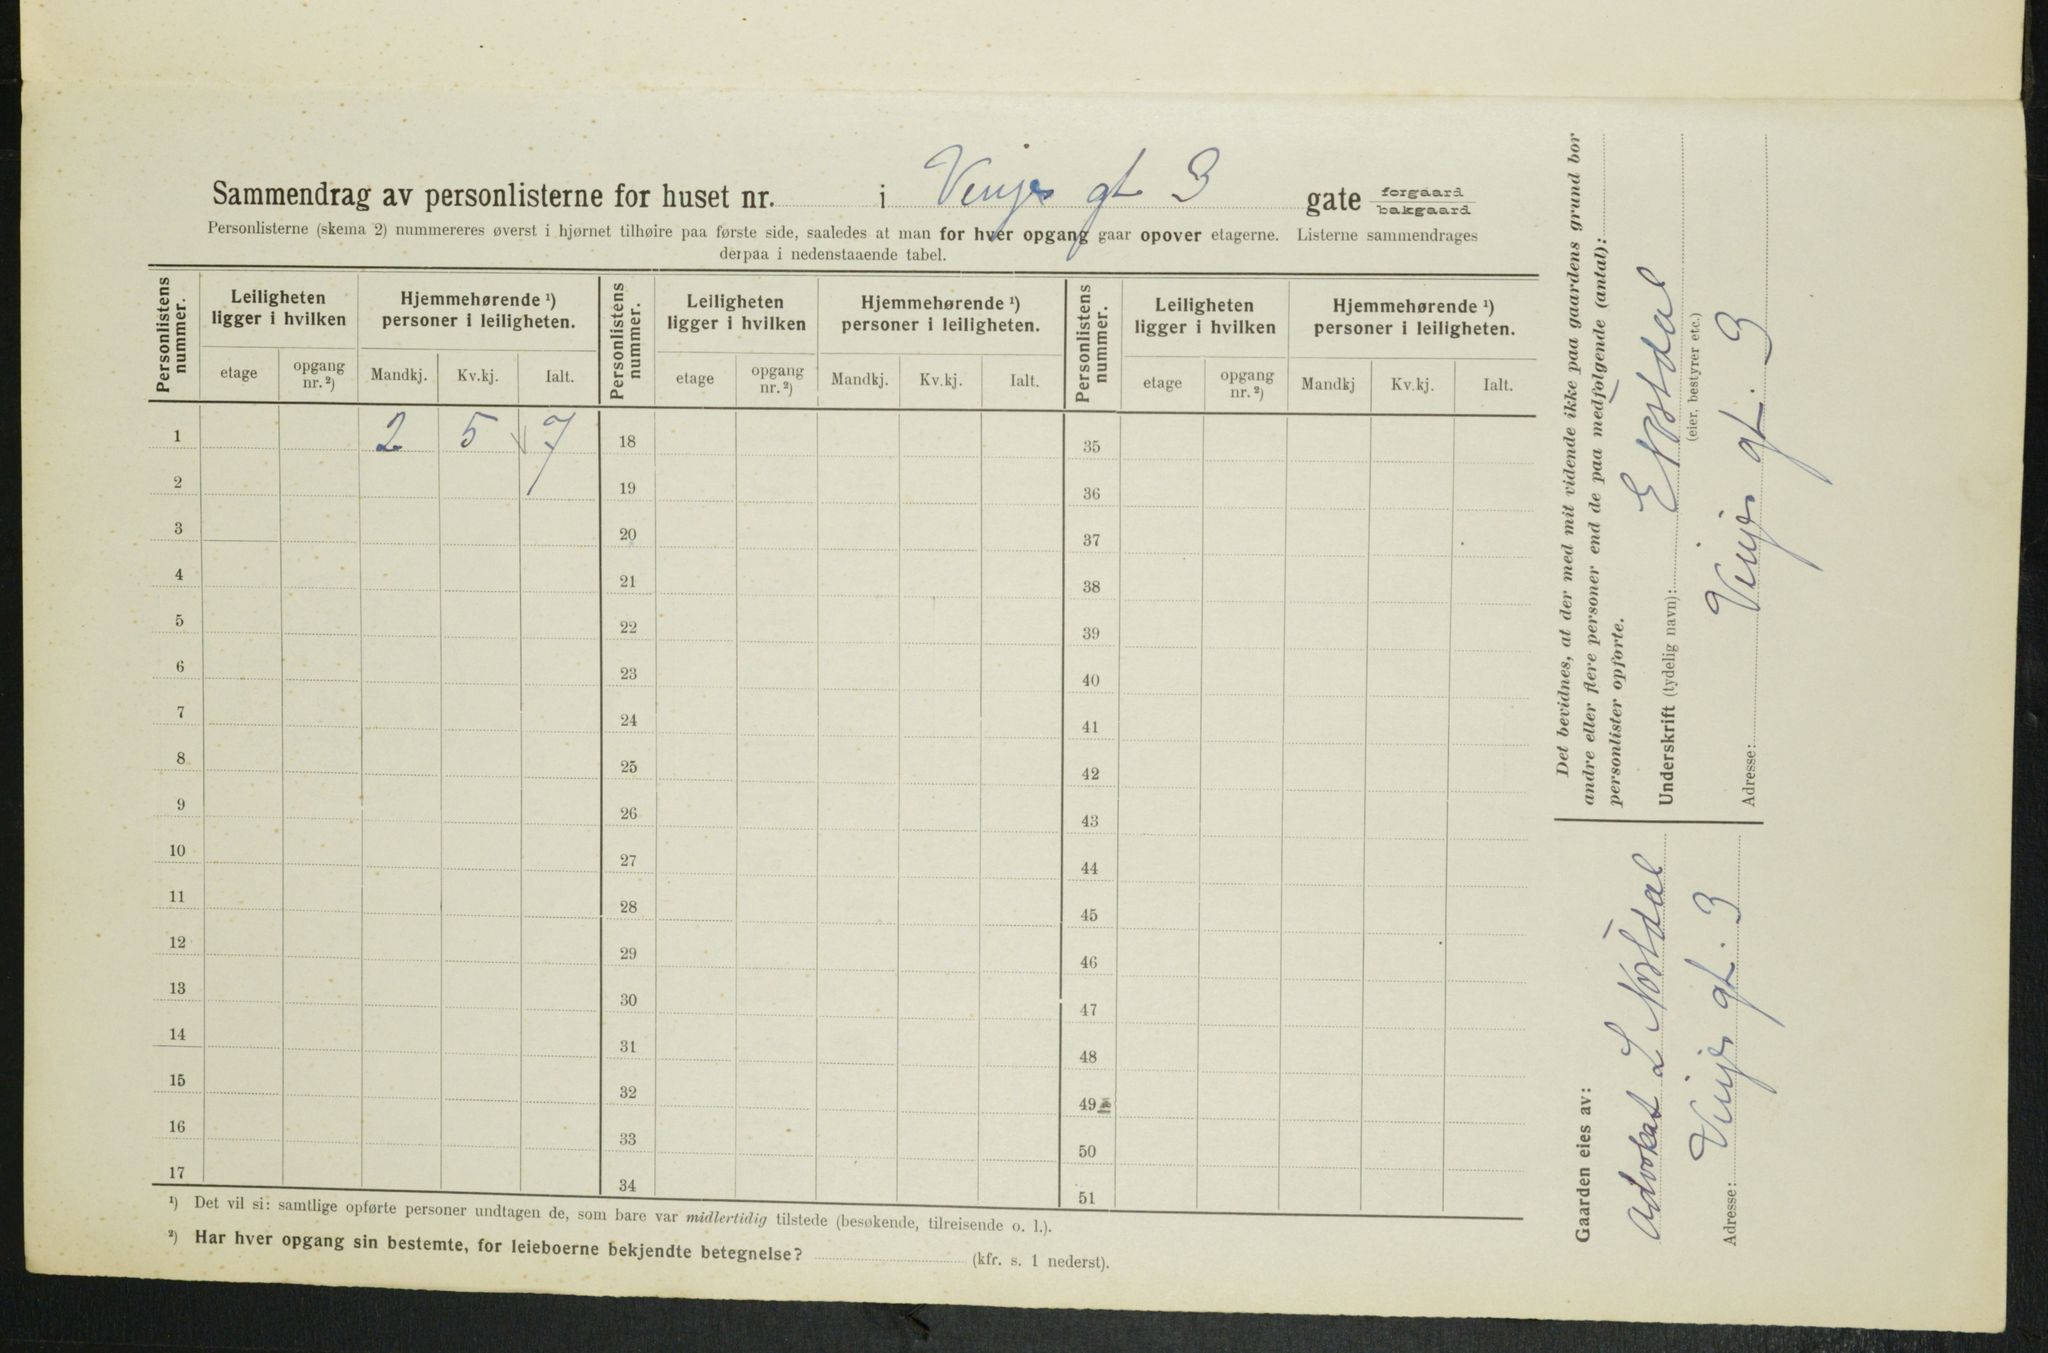 Sammendrag av personlisterne for huset nr. i Vinjes gt 3 gate forgaard bakgaard
Personlisterne (skema 2) nummereres øverst i hjørnet tilhøire paa første side, saaledes at man for hver opgang gaar opover etagerne. Listerne sammendrages
derpaa i nedenstaaende tabel.
Personlistens nummer. Leiligheten ligger i hvilken Hjemmehørende ¹) personer i leiligheten. Personlistens nummer. Leiligheten ligger i hvilken Hjemmehørende ¹) personer i leiligheten. Personlistens nummer. Leiligheten ligger i hvilken Hjemmehørende ¹) personer i leiligheten.
etage opgang nr. ²) Mandkj. Kv.kj. Ialt. etage opgang nr. ²) Mandkj. Kv.kj. Ialt. etage opgang nr. ²) Mandkj Kv.kj. Ialt.
1 2 5 7 18 35
2 19 36
3 20 37
4 21 38
5 22 39
6 23 40
7 24 41
8 25 42
9 26 43
10 27 44
11 28 45
12 29 46
13 30 47
14 31 48
15 32 49
16 33 50
17 34 51
¹) Det vil si: samtlige opførte personer undtagen de, som bare var midlertidig tilstede (besøkende, tilreisende o. l.).
²) Har hver opgang sin bestemte, for leieboerne bekjendte betegnelse? (kfr. s. 1 nederst).
Det bevidnes, at der med mit vidende ikke paa gaardens grund bor
andre eller flere personer end de paa medfølgende (antal):
personlister opførte.
Underskrift (tydelig navn): E Nostdal
(eier, bestyrer etc.)
Adresse: Vinjes gt. 3
Gaarden eies av:
Advokat L Nostdal
Adresse: Vinjes gt. 3